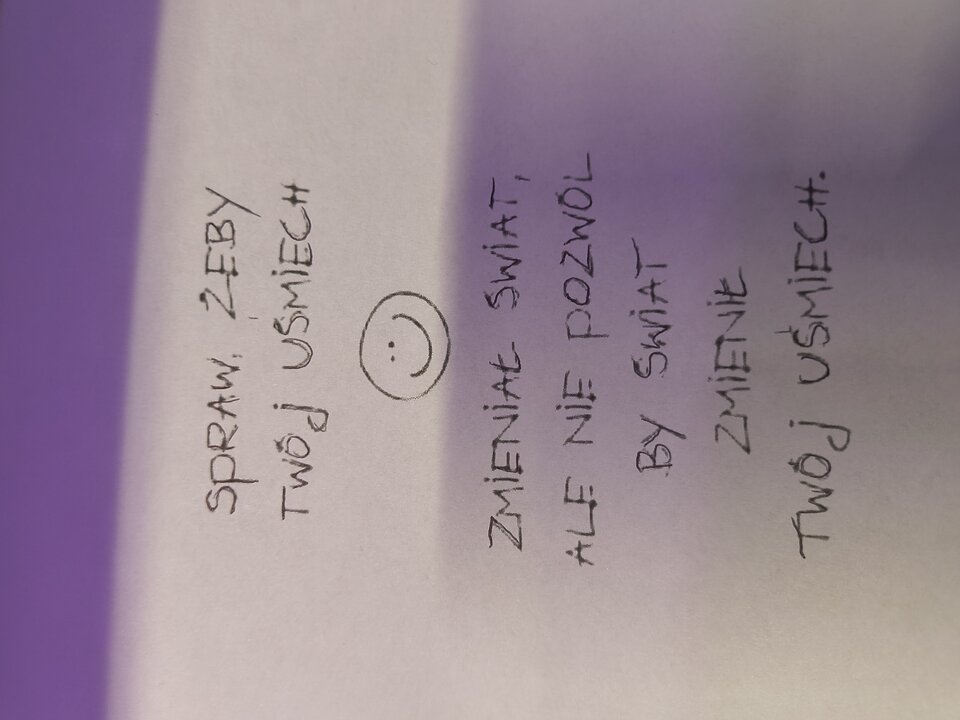 SPRAW, ŻEBY
TWÓJ UŚMIECH
ZMIENIAŁ ŚWIAT,
ALE NIE POZWÓL
BY ŚWIAT
ZMIENIŁ
TWÓJ UŚMIECH.